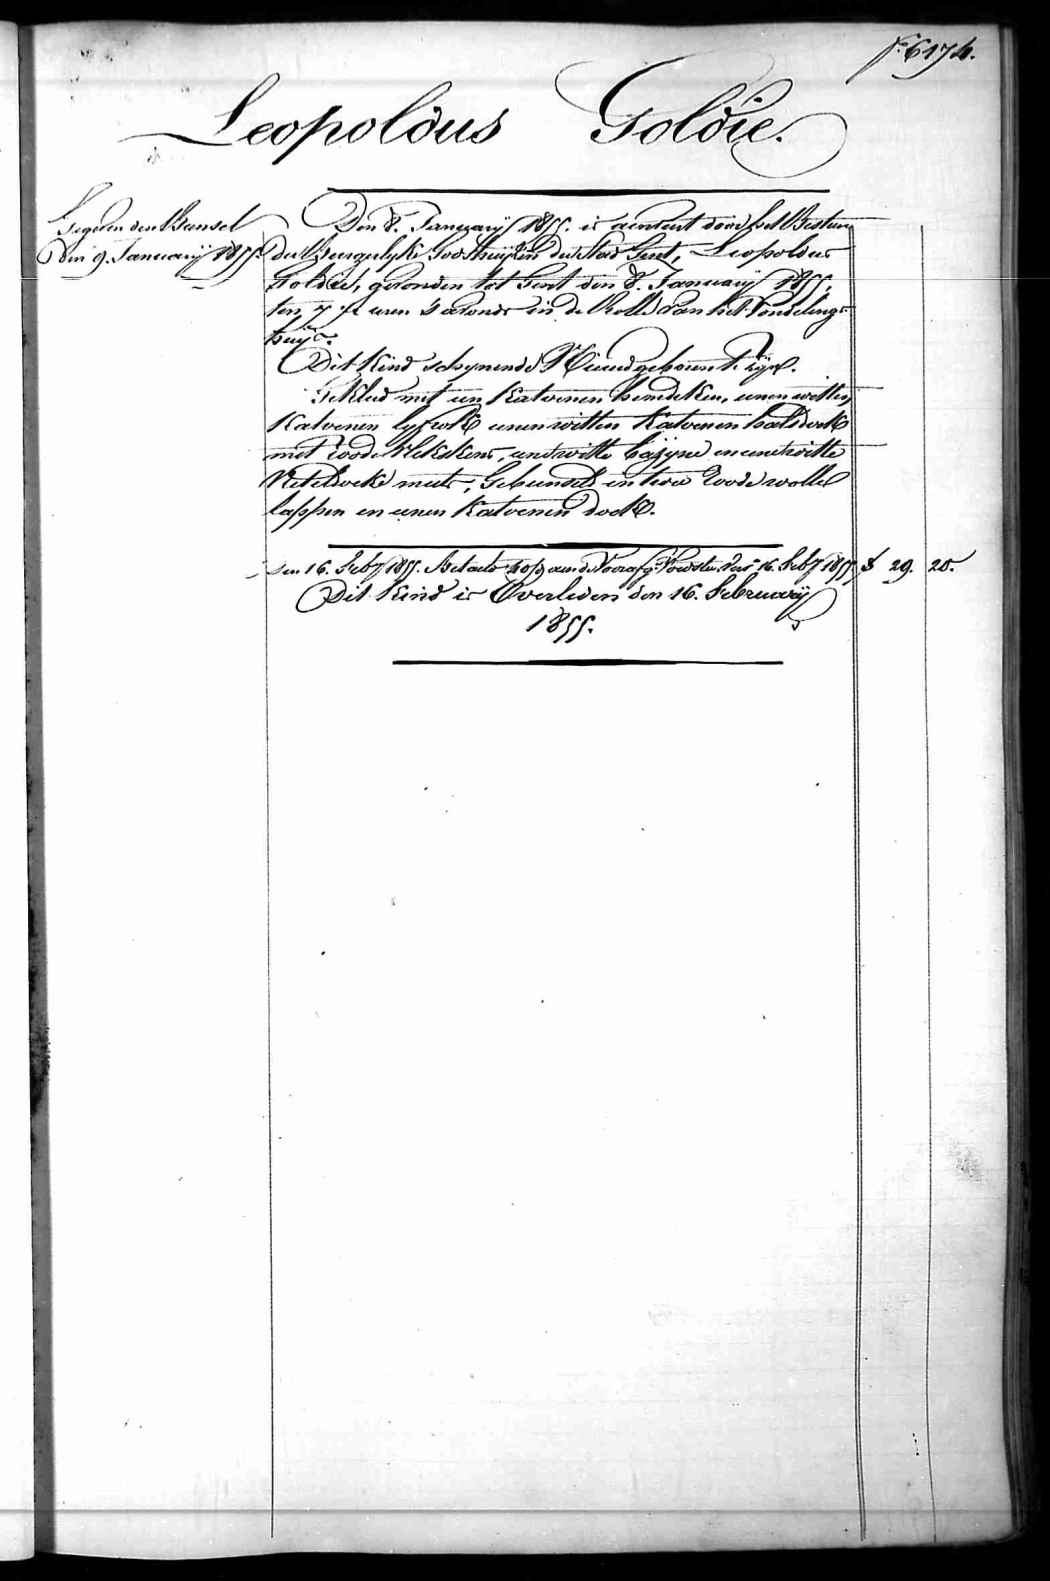 f.° 6174.
Leopoldus Goldie.
Gegeven den Bunsel
Den 9. Januarij 1855.
Den 8. Januarij 1855. is aenveert door het Bestuer
der Burgerlyke Godshuyzen der Stad Gent, Leopoldus
Goldie, gevonden tot Gent den 8. Januarij 1855,
ten 7 uren 's avonds in de Rolle van het Vondelings-
huys.
Dit Kind schynende Nieuwgeboren te zyn.
Gekleed met een Katoenen hemdeken, eenen witten
Katoenen lyfrok eenen witten Katoenen halsdoek
met roode plekskens, eene witte bazyne en eene witte
Neteldoeke muts, Gebunseld in twee roode wolle
lappen en eenen Katoenen doek.
Den 16. Feb.y 1855. Betaeld aen de Voedster 16. Feb.y 1855 f 29. 20.
Dit Kind is Overleden den 16. February
1855.